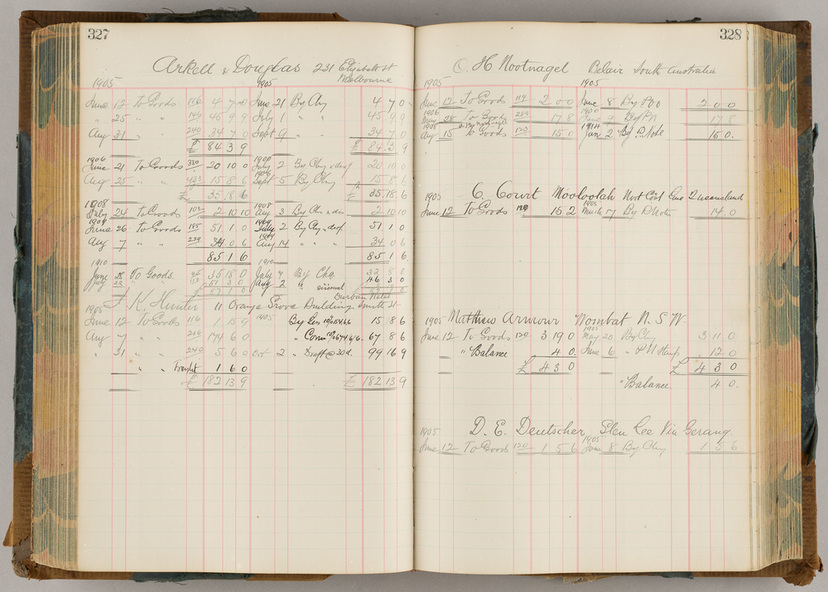 327
Arkell & Douglas 231 Elizabeth St Melbourne
1905 1905
June 12 To Goods 116 4 7 0 June 21 By Chq 4 7 0
" 25 " " 45 9 9 July 1 " " 45 9 9
Aug 31 " " 240 34 7 0 Sept 9 " " 34 7 0
£ 84 3 9 £ 84 3 9
1906
June 21 To Goods 20 10 0 July 2 By Chq 20 10 0
Aug 25 " " 15 8 6 Sept 5 By Chq 15 8 6
£ 35 18 6 35 18 6
1908 1908
July 24 To Goods 2 10 10 Aug 3 By Chq 2 10 10
1909 1909
June 26 To Goods 185 51 1 0 July 2 By Chq 51 1 0
Aug 7 " " 239 34 0 6 Aug 14 " " " 34 0 6
85 1 6 85 1 6
1910 1910
June To Goods 35 18 0 July 9 By Chq
Aug 2 "
J. K. Hunter 11 Orange Grove Building Smith St
1905 1905
June 12 To Goods 116 1 15 9 By Gen 15 8 6
Aug 7 " " 174 6 0 " Com 67 8 6
" 31 " " 240 5 6 0 Oct 2 " Draft @ 30 d. 99 16 9
Freight 1 6 0
£ 182 13 9 £ 182 13 9
328
O. H. Nootnagel Belair South Australia
1905 1905
June 12 To Goods 119 2 0 0 June 8 By P.O.O 2 0 0
28 To Goods 17 8 17 8
Aug 15 To Goods 15 0 June 2 By P. Note 15 0
1914
C. Court Mooloolah Nort Cost Line Queensland
1905 1905
June 12 To Goods 120 16 2 March 17 By P Note 14 0
Matthew Armour Wombat N. S. W
1905
June 12 To Goods 120 3 19 0 May 20 By Chq 3 11 0
" Balance 4 0 June 6 " P N Stamps 12 0
£ 4 3 0 £ 4 3 0
" Balance 4 0
D. E. Deutscher Glen Lee Via Gerang
1905 1905
June 12 To Goods 120 1 5 6 June 8 By Chq 1 5 6